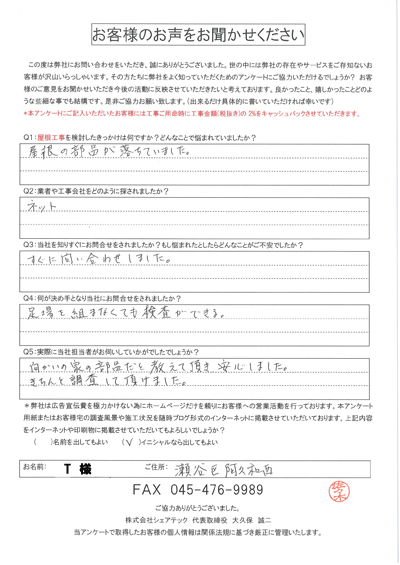 お客様のお声をお聞かせください
この度は弊社にお問い合わせをいただき、誠にありがとうございました。世の中には弊社の存在やサービスをご存知ないお
客様が沢山いらっしゃいます。その方たちに弊社をよく知っていただくためのアンケートにご協力いただけるでしょうか？ お客
様のご意見をお聞かせいただき今後の活動に反映させていただきたいと考えております。良かったこと、嬉しかったことどのよ
うな些細な事でも結構です。是非ご協力お願い致します。（出来るだけ具体的に書いていただければ幸いです）
*本アンケートにご記入いただいたお客様には工事ご用命時に工事金額(税抜き)の 2%をキャッシュバックさせていただきます。
Q1：屋根工事を検討したきっかけは何ですか？どんなことで悩まれていましたか？
屋根の部品が落ちていました。
Q2：業者や工事会社をどのように探されましたか？
ネット
Q3：当社を知りすぐにお問合せをされましたか？もし悩まれたとしたらどんなことがご不安でしたか？
すぐに問い合わせしました。
Q4：何が決め手となり当社にお問合せをされましたか？
足場を組まなくても検査ができる。
Q5：実際に当社担当者がお伺いしていかがでしたでしょうか？
向かいの家の部品だと教えて頂き安心しました。
きちんと調査して頂けました。
＊弊社は広告宣伝費を極力かけない為にホームページだけを頼りにお客様への営業活動を行っております。本アンケート
用紙またはお客様宅の調査風景や施工状況を随時ブログ形式でインターネットに掲載させていただいております。上記内容
をインターネットや印刷物に掲載させていただいてもよろしいでしょうか？
（ ）名前を出してもよい （✓）イニシャルなら出してもよい
お名前： T 様 ご住所： 瀬谷区阿久和西
FAX 045-476-9989
ご協力ありがとうございました。
株式会社シェアテック 代表取締役 大久保 誠二
当アンケートで取得したお客様の個人情報は関係法規に基づき厳正に管理いたします。